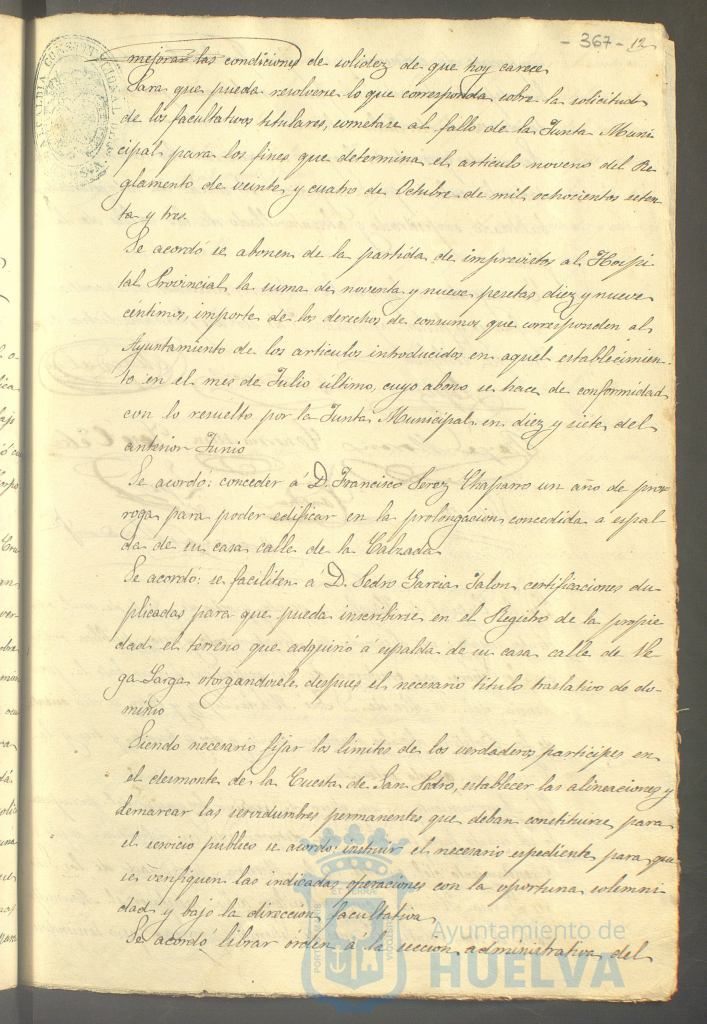 - 367 - 12
mejorar las condiciones de solidez de que hoy carece
Para que pueda resolverse lo que corresponda sobre la solicitud
de los facultativos titulares, sometase al fallo de la Junta Muni
cipal para los fines que determina el articulo noveno del Re
glamento de veinte y cuatro de Octubre de mil ochocientos seten
ta y tres.
Se acordó se abonen de la partida de imprevistos al Hospi
tal Provincial la suma de noventa y nueve pesetas diez y nueve
centimos, importe de los derechos de consumos que corresponden al
Ayuntamiento de los articulos introducidos en aquel establecimien-
to en el mes de Julio último, cuyo abono se hace de conformidad
con lo resuelto por la Junta Municipal en diez y siete del
anterior Junio
Se acordó: conceder á D. Francisco Perez Chaparro un año de pror
roga para poder edificar en la prolongacion concedida a espal
da de su casa calle de la Calzada
Se acordó: se faciliten á D. Pedro Garcia Jalon certificaciones du
plicadas para que pueda inscribirse en el Registro de la propie
dad el terreno que adquirió á espalda de su casa calle de Ve
ga Larga otorgandosele despues el necesario titulo traslativo de do-
minio
Siendo necesario fijar los limites de los verdaderos participes en
el desmonte de la Cuesta de San Pedro, establecer las alineaciones y
demarcar las servidumbres permanentes que deban constituirse para
el servicio público se acordó: instruir el necesario espediente para que
se verifiquen las indicadas operaciones con la oportuna solemni
dad y bajo la direccion facultativa
Se acordó librar órden á la seccion administrativa del
Ayuntamiento de
HUELVA